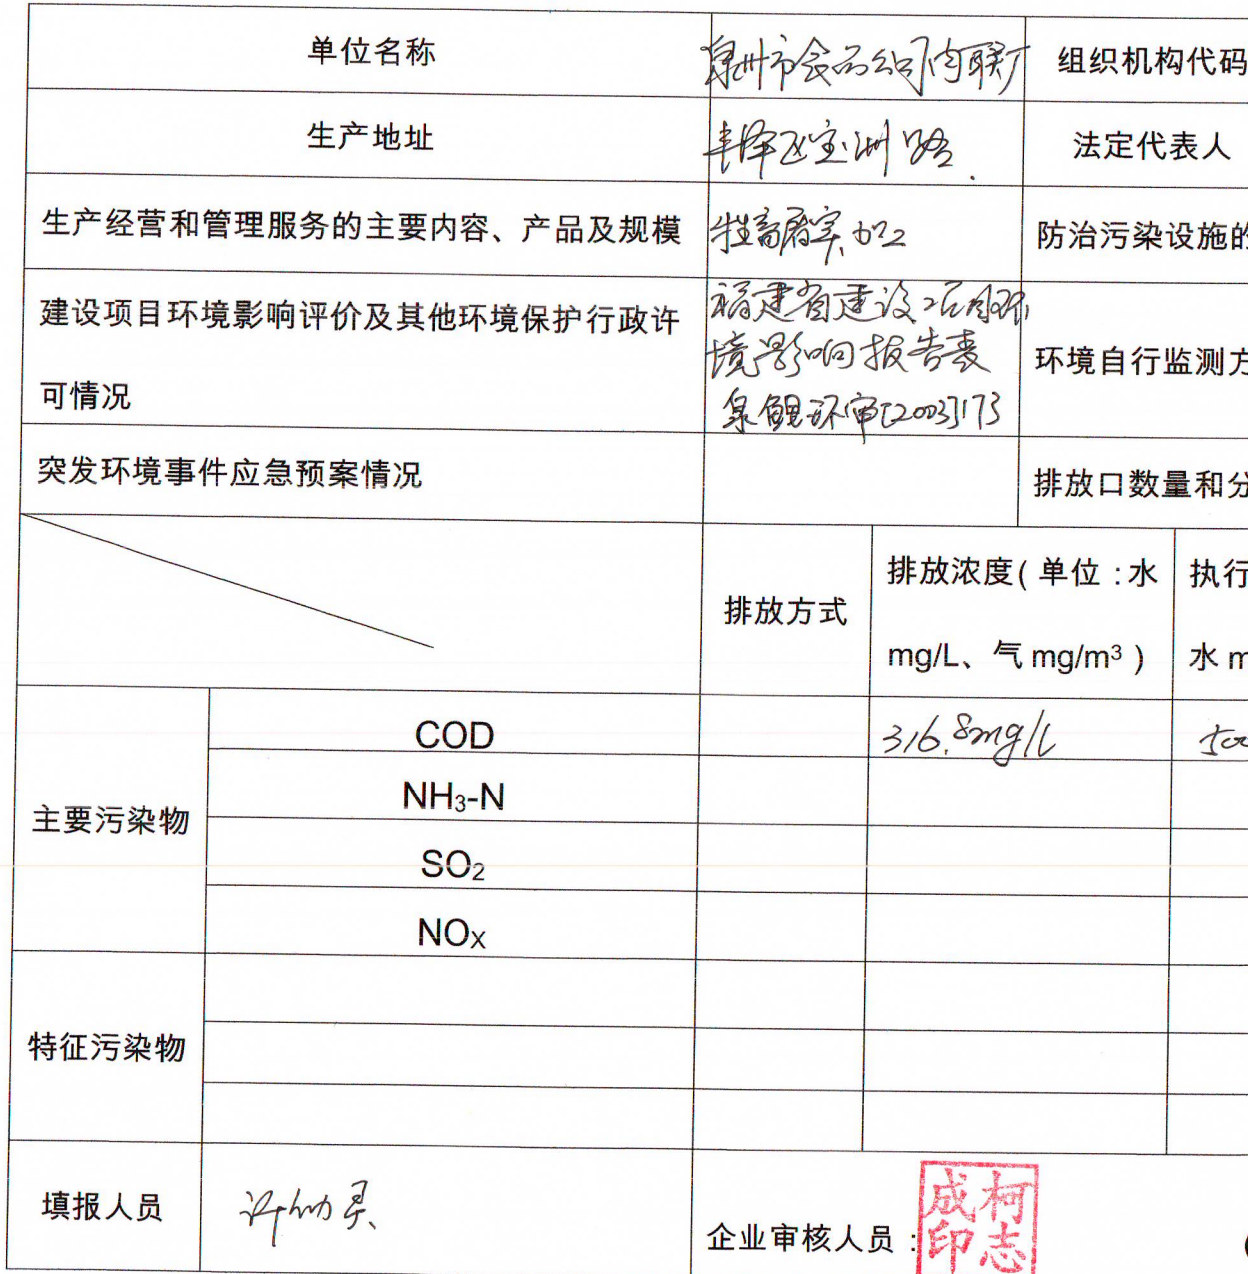 单位名称 泉州市食品公司肉联厂 组织机构代码
生产地址 丰泽区宝洲路. 法定代表人
生产经营和管理服务的主要内容、产品及规模 牲畜屠宰、加工 防治污染设施的
建设项目环境影响评价及其他环境保护行政许
可情况
福建省建设项目环
境影响报告表
泉鲤环审[2003]173
环境自行监测方
突发环境事件应急预案情况 排放口数量和分
排放方式
排放浓度(单位:水
mg/L、气 mg/m³)
执行
水 m
主要污染物
COD 316.8mg/L 500
NH₃-N
SO₂
NOx
特征污染物
填报人员 企业审核人员: 柯志成印